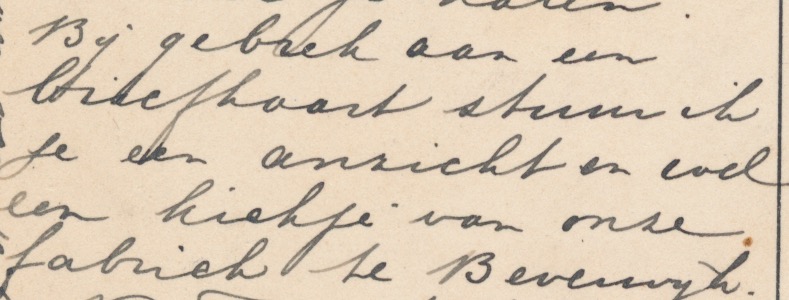 hooren.
Bij gebrek aan een
briefkaart stuur ik
je een anzicht en wel
een kiekje van onze
fabriek te Beverwijk.